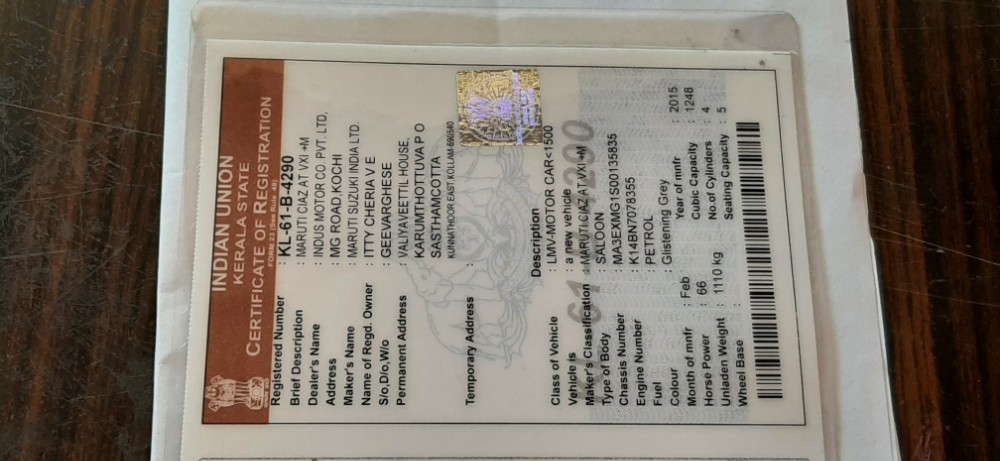 INDIAN UNION
KERALA STATE
CERTIFICATE OF REGISTRATION
FORM 23 (See Rule 48)
Registered Number : KL-61-B-4290
Brief Description : MARUTI CIAZ AT VXI +M
Dealer's Name : INDUS MOTOR CO. PVT. LTD,
Address : MG ROAD,KOCHI
Maker's Name : MARUTI SUZUKI INDIA LTD.
Name of Regd. Owner : ITTY CHERIA V E
S/o,D/o,W/o : GEEVARGHESE
Permanent Address : VALIYAVEETTIL HOUSE,
KARUMTHOTTUVA P O
SASTHAMCOTTA
KUNNATHOOR EAST,KOLLAM-690540
Temporary Address :
Description
Class of Vehicle : LMV-MOTOR CAR<1500
Vehicle is : a new vehicle
Maker's Classification : MARUTI CIAZ AT VXI +M
Type of Body : SALOON
Chassis Number : MA3EXMG1S00135835
Engine Number : K14BN7078355
Fuel : PETROL
Colour : Glistening Grey
Month of mnfr : Feb Year of mnfr : 2015
Horse Power : 66 Cubic Capacity : 1248
Unladen Weight : 1110 kg No.of Cylinders : 4
Wheel Base : Seating Capacity : 5